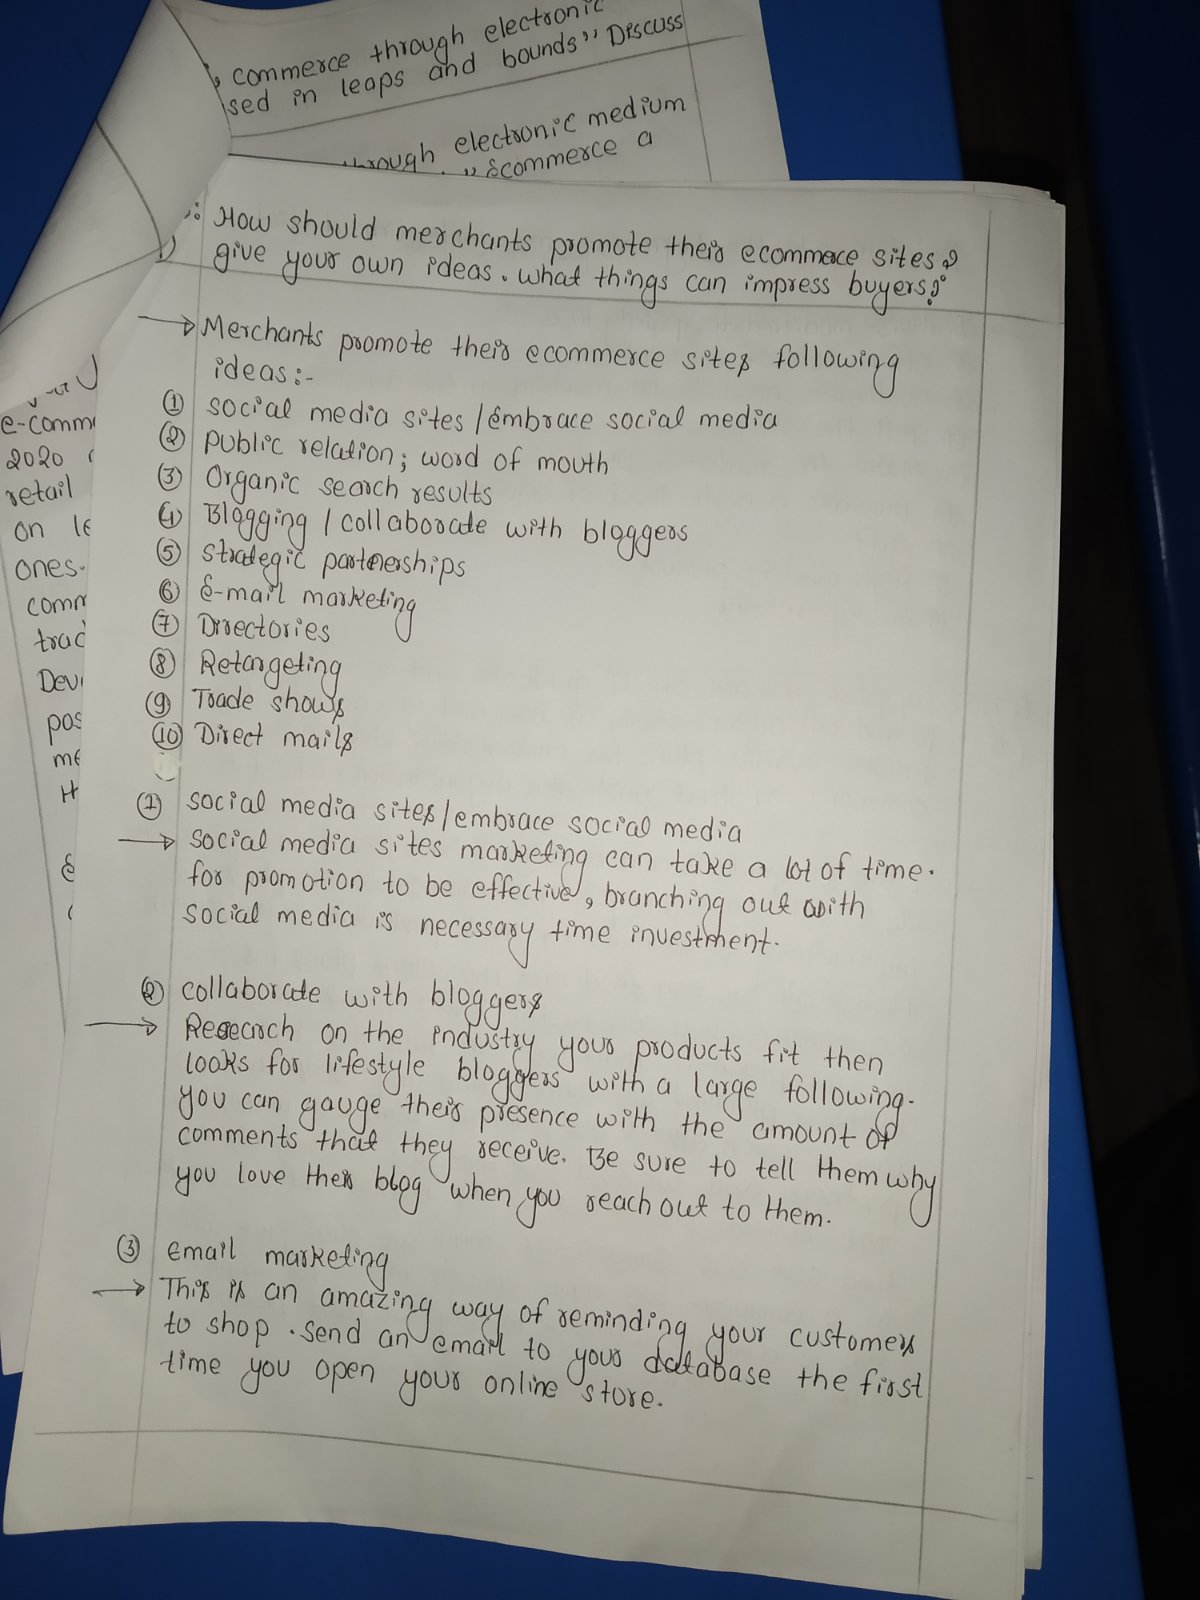 commerce through electronic
sed in leaps and bounds" Discuss
through electronic medium
" Ecommerce a
How should merchants promote their ecommerce sites?
give your own ideas. What things can impress buyers?
→ Merchants promote their ecommerce sites following
ideas:-
① social media sites / embrace social media
② public relation; word of mouth
③ Organic search results
④ Blogging / collaborate with bloggers
⑤ strategic partnerships
⑥ E-mail marketing
⑦ Directories
⑧ Retargeting
⑨ Trade shows
⑩ Direct mails
① social media sites/embrace social media
→ social media sites marketing can take a lot of time.
for promotion to be effective, branching out with
social media is necessary time investment.
② collaborate with bloggers
→ Research on the industry your products fit then
looks for lifestyle bloggers with a large following.
you can gauge their presence with the amount of
comments that they receive. Be sure to tell them why
you love their blog when you reach out to them.
③ Email marketing
→ This is an amazing way of reminding your customers
to shop. Send an email to your database the first
time you open your online store.
e-comm
2020
retail
on le
ones.
comm
trad
Deve
pos
me
H